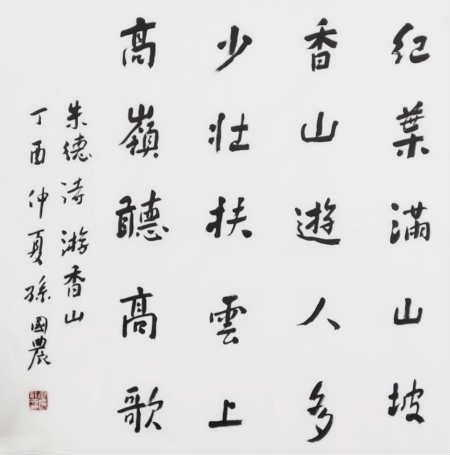 紅葉滿山坡
香山遊人多
少壯扶雲上
高嶺聽高歌
朱德诗游香山
丁酉仲夏孫國農